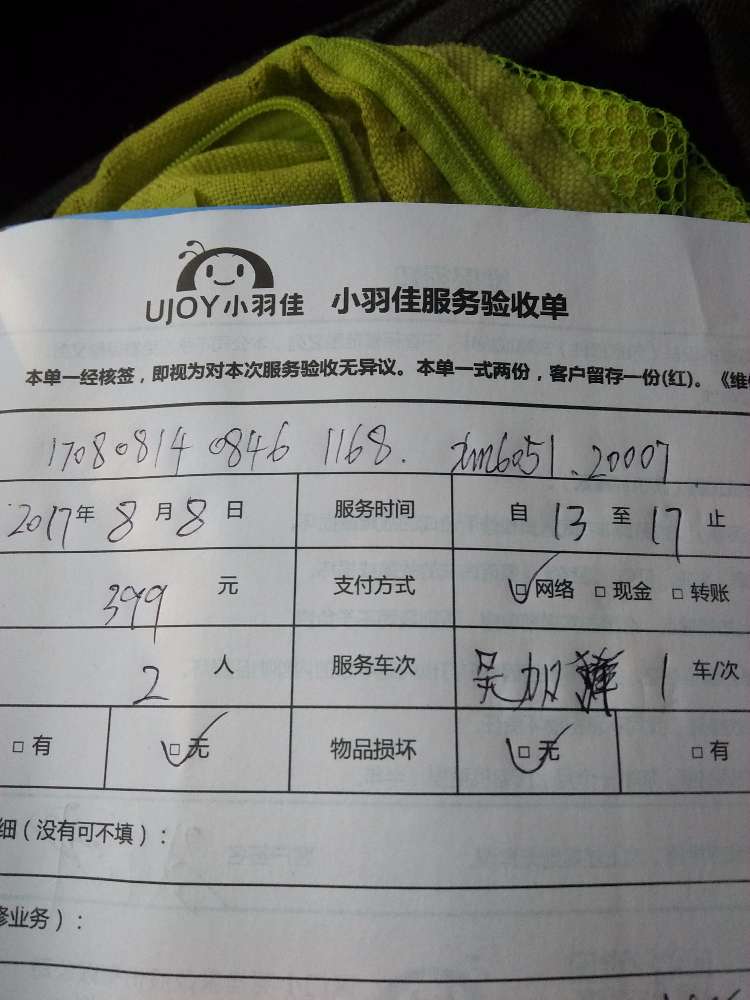 UJOY小羽佳 小羽佳服务验收单
本单一经核签，即视为对本次服务验收无异议。本单一式两份，客户留存一份(红)。《维
17080814 0846 1168. xm6051.20007
2017年 8月8日 服务时间 自 13 至 17 止
399 元 支付方式 ☑网络 □现金 □转账
2 人 服务车次 吴加 1 车/次
□有 ☑无 物品损坏 ☑无 □有
细（没有可不填）：
修业务）：